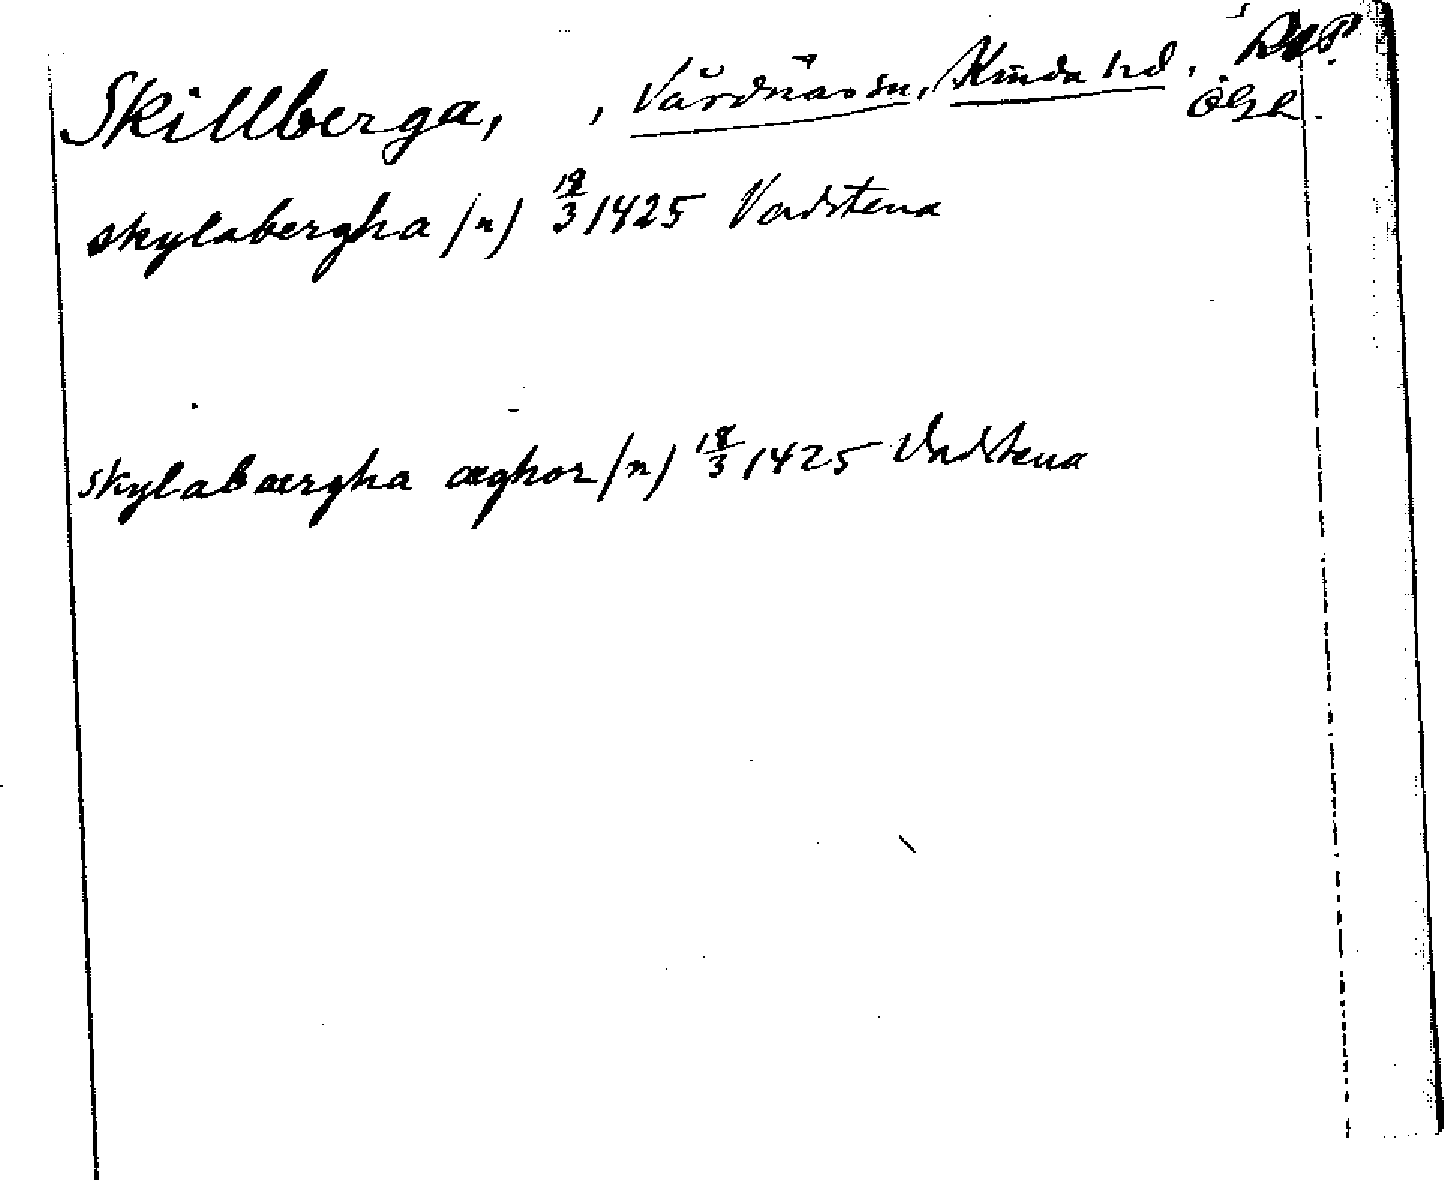 Skillberga, , Vårdnäs sn, Kinda hd. Ögl.
skylabergha (n) 18/3 1425 Vadstena
skylabærgha æghor (n) 18/3 1425 Vadstena